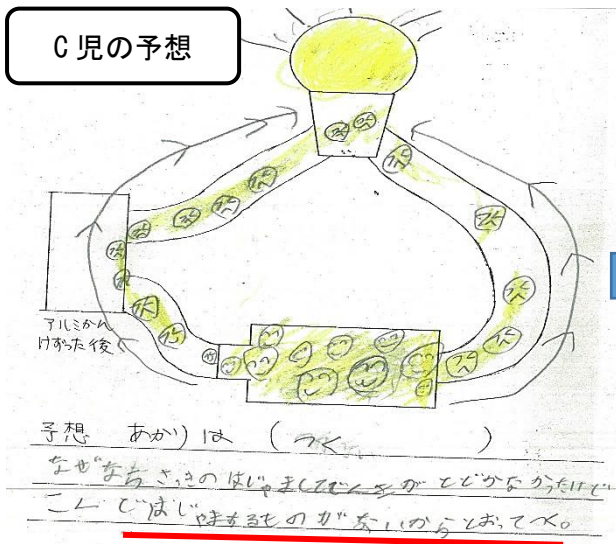 C児の予想
アルミかん
けずった後
予想 あかりは (つく)
なぜなら さっきのはじゃましてでんきがとどかなかったけど
こんどはじゃまするものがないからとおってつく。